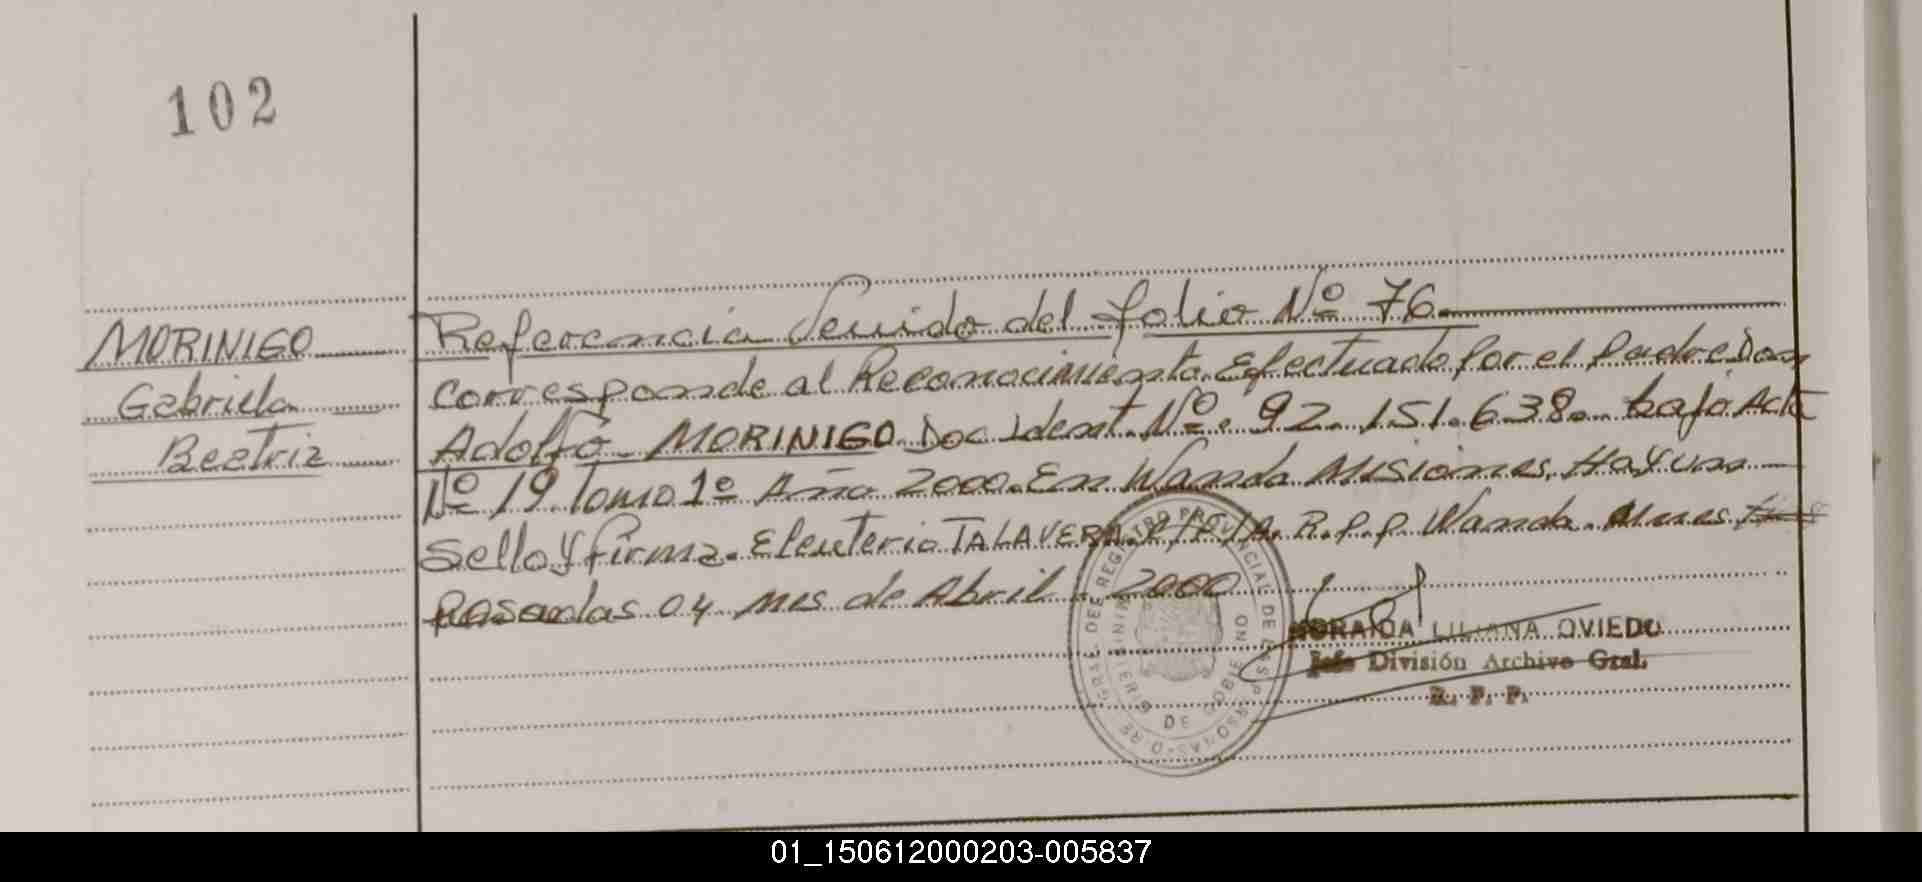 102
MORINIGO
Gabriela
Beatriz
Referencia Venido del folio Nº 76
corresponde al Reconocimiento Efectuado por el padre Don
Adolfo MORINIGO Doc Ident. Nº. 92.151.638. bajo Acta
Nº 19 Tomo 1º Año 2000. En Wanda Misiones. Hay un
Sello y firma. Eleuterio TALAVERA. R.P.P. Wanda. Mnes
Posadas 04 mes de Abril 2000
REGISTRO PROVINCIAL DE LAS PERSONAS
MINISTERIO DE GOBIERNO
LILIANA OVIEDO
Jefe División Archivo Gral.
R. P. P.
01_150612000203-005837